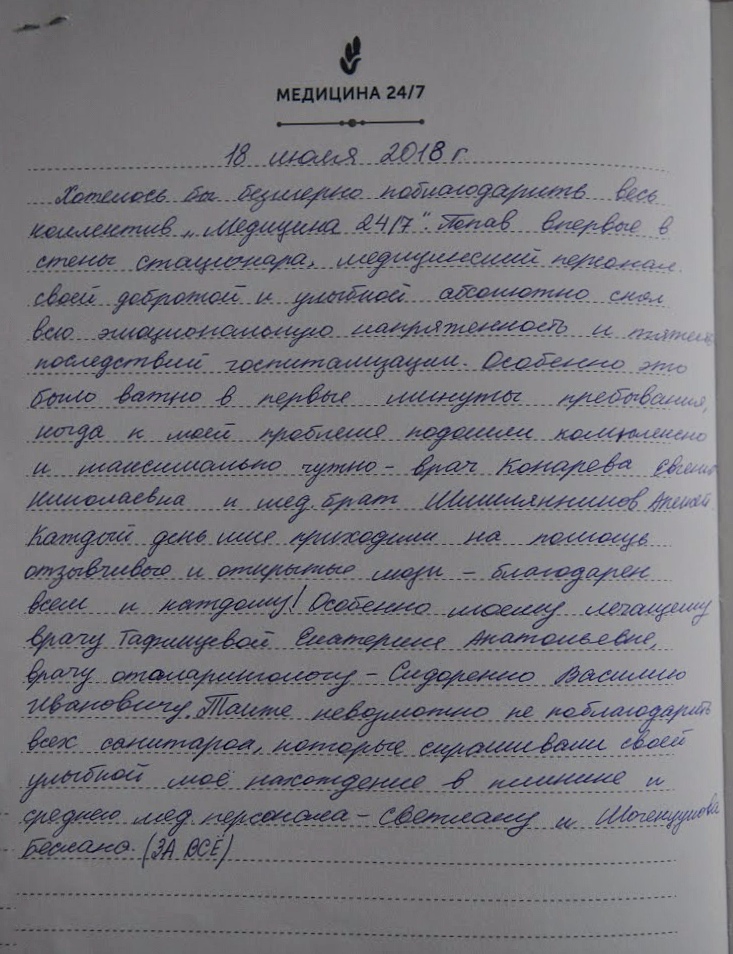 МЕДИЦИНА 24/7
18 июля 2018 г.
Хотелось бы безмерно поблагодарить весь
коллектив „Медицина 24/7". Попав впервые в
стены стационара, медицинский персонал
своей добротой и улыбкой абсолютно снял
всю эмациональную напряженность и
последствий госпитализации. Особенно это
было важно в первые минуты пребывания,
когда к моей проблеме подошли комплексно
и максимально чутко – врач Конарева Евгения
Николаевна и мед.брат Шишлянников Алексей.
Каждый день мне приходили на помощь
отзывчивые и открытые люди – благодарен
всем и каждому! Особенно моему лечащему
врачу Екатерине Анатольевне,
врачу отоларингологу – Сидоренко Василию
Ивановичу. Также невозможно не поблагодарить
всех санитарок, которые скрашивали своей
улыбкой моё нахождение в клинике и
среднего мед.персонала – Светлану и
Беслана. (ЗА ВСЁ)